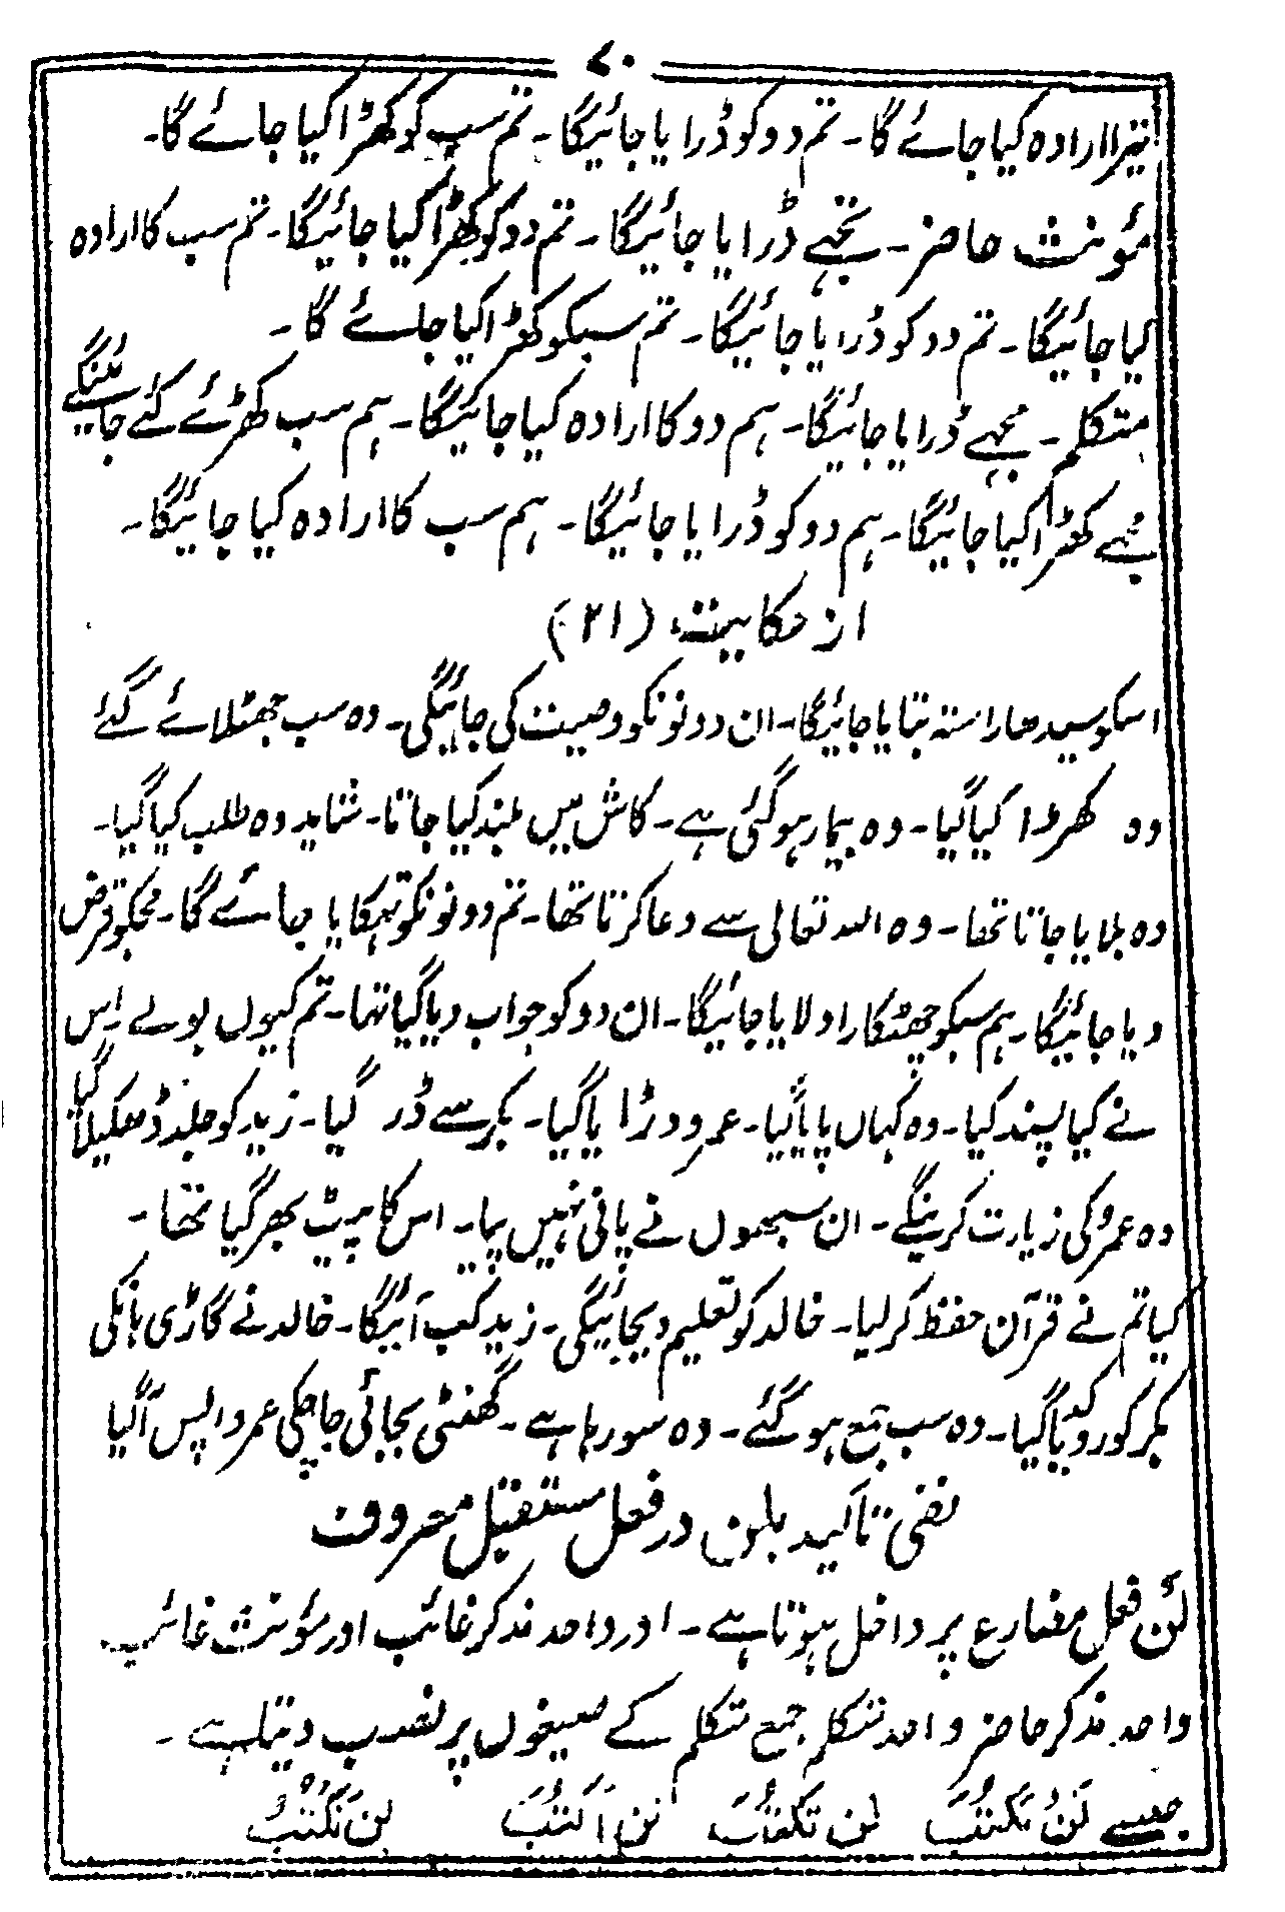 ۷۰
تیرا ارادہ کیا جائے گا۔ تم دو کو ڈرایا جائیگا۔ تم سب کو کھڑا کیا جائے گا۔
مؤنث حاضر۔ تجہے ڈرایا جائیگا۔ تم دو کو کھڑا کیا جائیگا۔ تم سب کا ارادہ
کیا جائیگا۔ تم دو کو ڈرایا جائیگا۔ تم سبکو کھڑا کیا جائے گا۔
متکلم۔ مجہے ڈرایا جائیگا۔ ہم دو کا ارادہ کیا جائیگا۔ ہم سب کھڑے کئے جائینگے
مجہے کھڑا کیا جائیگا۔ ہم دو کو ڈرایا جائیگا۔ ہم سب کا ارادہ کیا جائیگا۔
از حکایت (۲۱)
اسکو سیدھا راستہ بتایا جائیگا۔ ان دونونکو وصیت کی جائیگی۔ وہ سب جھٹلائے گئے
وہ کھڑا کیا گیا۔ وہ بیمار ہو گئی ہے۔ کاش میں بلند کیا جاتا۔ شاید وہ طلب کیا گیا۔
وہ بلایا جاتا تھا۔ وہ اللہ تعالی سے دعا کرتا تھا۔ تم دونونکو تہکایا جائے گا۔ مجکو قرض
دیا جائیگا۔ ہم سبکو چھٹکارا دلایا جائیگا۔ ان دو کو جواب دیا گیا تہا۔ تم کیوں بولے۔ اس
نے کیا پسند کیا۔ وہ کہاں پایا گیا۔ عمرو دوڑایا گیا۔ بکر سے ڈر گیا۔ زید کو جلد ڈھکیلا گیا
وہ عمرو کی زیارت کرینگے۔ ان سبھوں نے پانی نہیں پیا۔ اس کا پیٹ بھر گیا تھا۔
کیا تم نے قرآن حفظ کر لیا۔ خالد کو تعلیم دیجائیگی۔ زید کب آئیگا۔ خالد نے گاڑی ہانکی
بکر کو رد کر دیا گیا۔ وہ سب جمع ہو گئے۔ وہ سو رہا ہے۔ گھنٹی بجائی جا چکی عمر واپس آ گیا
نفی تاکید بلن در فعل مستقبل معروف
لَنْ فعل مضارع پر داخل ہوتا ہے۔ اور واحد مذکر غائب اور مؤنث غائب
واحد مذکر حاضر واحد متکلم جمع متکلم کے صیغوں پر نصب دیتا ہے۔
جیسے لَنْ یَکْتُبَ لن تَکْتُبَ لن اَکْتُبَ لن نَکْتُبَ